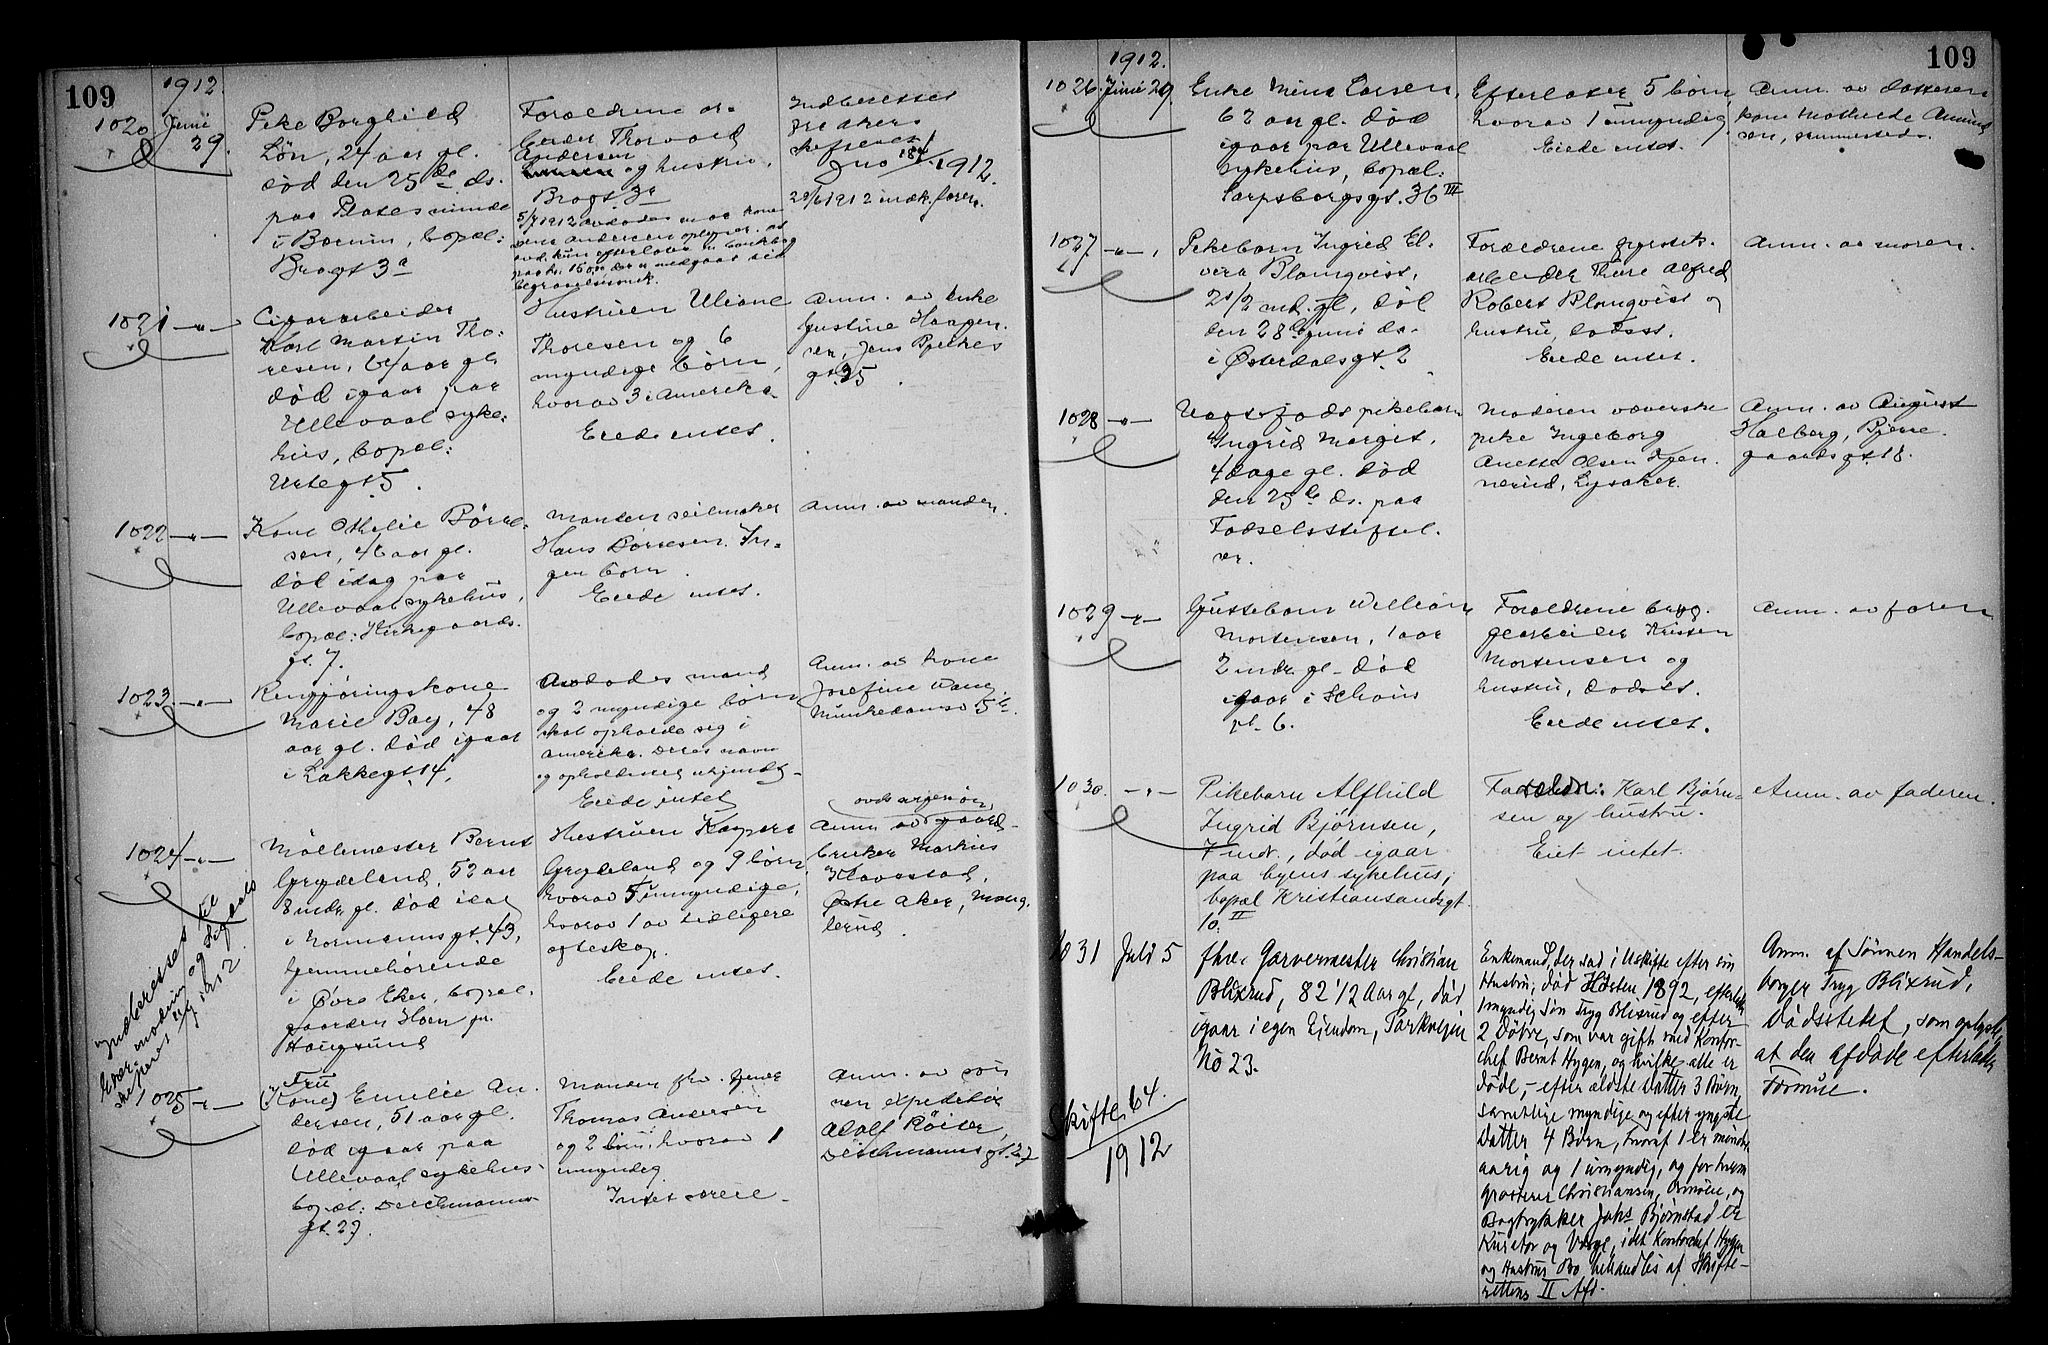 109
1912.
1020 Juni 29.
Pike Borghild
Løn, 24 aar gl.
død den 25de ds.
paa
i Bærum, bopæl:
Brogt 3a
Forældrene ar-
beider Thorvald
Andersen
og hustru,
Brogt. 3a
5/7 1912 avdødes mor kone
Andersen oplyser at
avd. kun efterlater en bankbog
paa kr. 16,00 der er medgaat til
begravelsesomk.
Indberettet
fra Akers
1912.
1021 -"-
Cigararbeider
Karl Martin Tho-
resen, 64 aar gl.
død igaar paa
Ullevaal syke-
hus, bopæl:
Urtegt 5.
Hustruen Uliane
Thoresen og 6
myndige børn,
hvorav 3 i Amerika.
Eiede intet.
Anm. av enke
Gustine Haagen-
sen, Jens Bjelkes
gt. 35.
1022 -"-
Kone Othilie Børre-
sen, 46 aar gl.
død idag paa
Ullevaal sykehus,
bopæl: Kirkegaards-
gt. 7.
Manden seilmaker
Hans Børresen. In-
gen børn.
Eiede intet.
Anm. av manden.
1023. -"-
Rengjøringskone
Marie Bay, 48
aar gl. død igaar
i Lakkegt 14.
Avdødes mand
og 2 myndige børn
skal opholde sig i
Amerika. Deres navn
og opholdssted ukjendt.
Eiede intet
Anm. av kone
Josefine Wang,
Munkedamsv 5b.
1024 -"-
Møllemester Bernt
Grydeland, 52 aar
8 mdr. gl. død idag
i Normannsgt 43,
hjemmehørende
i Øvre Eker, bopæl:
gaarden Horn pr.
Hougsund
Hustruen Kaspara
Grydeland og 9 børn
hvorav 5 umyndige,
hvorav 1 av tidligere
egteskap.
Eiede intet.
avds svigersøn,
Anm. av gaard-
bruker Markus
Klavestad,
Østre Aker, Mang-
lerud.
Indberettet til
Eker, Modum og Sigdals
1912.
1025 -"-
Fru
(Kone) Emilie An-
dersen, 51 aar gl.
død igaar paa
Ullevaal sykehus,
bopæl: Deichmanns-
gt. 27.
Manden
Thomas Andersen
og 2 børn, hvorav 1
umyndig.
Intet at eie.
Anm. av søn-
nen expeditør
Adolf Røiser,
Deichmannsgt. 27
109
1912.
1026. Juni 29.
Enke Mina Larsen,
62 aar gl. død
igaar paa Ullevaal
sykehus, bopæl:
Sarpsborggt. 36 III
Efterlater 5 børn,
hvorav 1 umyndig.
Eiede intet.
Anm. av datteren
kone Mathilde Amund
sen, sammested.
1027 -"-
Pikebarn Ingrid El-
vira Blomqvist,
2 1/2 md. gl. død
den 28de Juni ds.
i Østerdalsgt. 2
Forældrene fyrstik-
arbeider Thure Alfred
Robert Blomqvist og
hustru, dødsst.
Eiede intet.
Anm. av moren.
1028 -"-
Uegtefødt pikebarn
Ingrid Margit,
4 dage gl. død
den 25de ds. paa
Fødselsstiftel-
sen.
Moderen væverske
pike Ingeborg
Anette Olsen
Lysaker.
Anm. av August
Halberg, Bjerre-
gaardsgt. 18.
1029 -"-
Guttebarn William
Mortensen, 1 aar
2 mdr. gl. død
igaar i Schous
pl. 6.
Forældrene bryg-
gearbeider Kristen
Mortensen og
hustru, dødsst.
Eiede intet.
Anm. av faren
1030. -"-
Pikebarn Alfhild
Ingrid Bjørnsen,
7 mdr., død igaar
paa byens sykehus,
bopæl Kristiansandsgt.
10 II
Forældr: Karl Bjørn-
sen og hustru.
Eiet intet.
Anm. av faderen.
1031 Juli 5
fhv. Garvermester Christian
Blixrud, 82 1/2 Aar gl, død
igaar i egen Eiendom, Parkveien
No 23.
Enkemand, der sad i Uskifte efter sin
Hustru, død Høsten 1892, efterlader
1 myndig Søn Tryg Blixrud og efter
2 Døtre, som var gift med Kontor-
chef Bernt Hygen, og hvilke alle er
døde, - efter ældste Datter 3 Børn,
samtlige myndige og efter yngste
Datter 4 Børn, hvoraf 1 er mindre-
aarig og 1 umyndig, og for hvem
Christiansen, og
Bogtrykker Johs Bjørnstad er
Kurator og Værge, idet Kontorchef Hygen
og Hustrus Bo behandles af Skifte-
rettens II Afd.
Anm. af Sønnen Handels-
borger Tryg Blixrud,
Dødsstedet, som oplyste,
at den afdøde efterlader
Formue.
Skifte 64.
1912